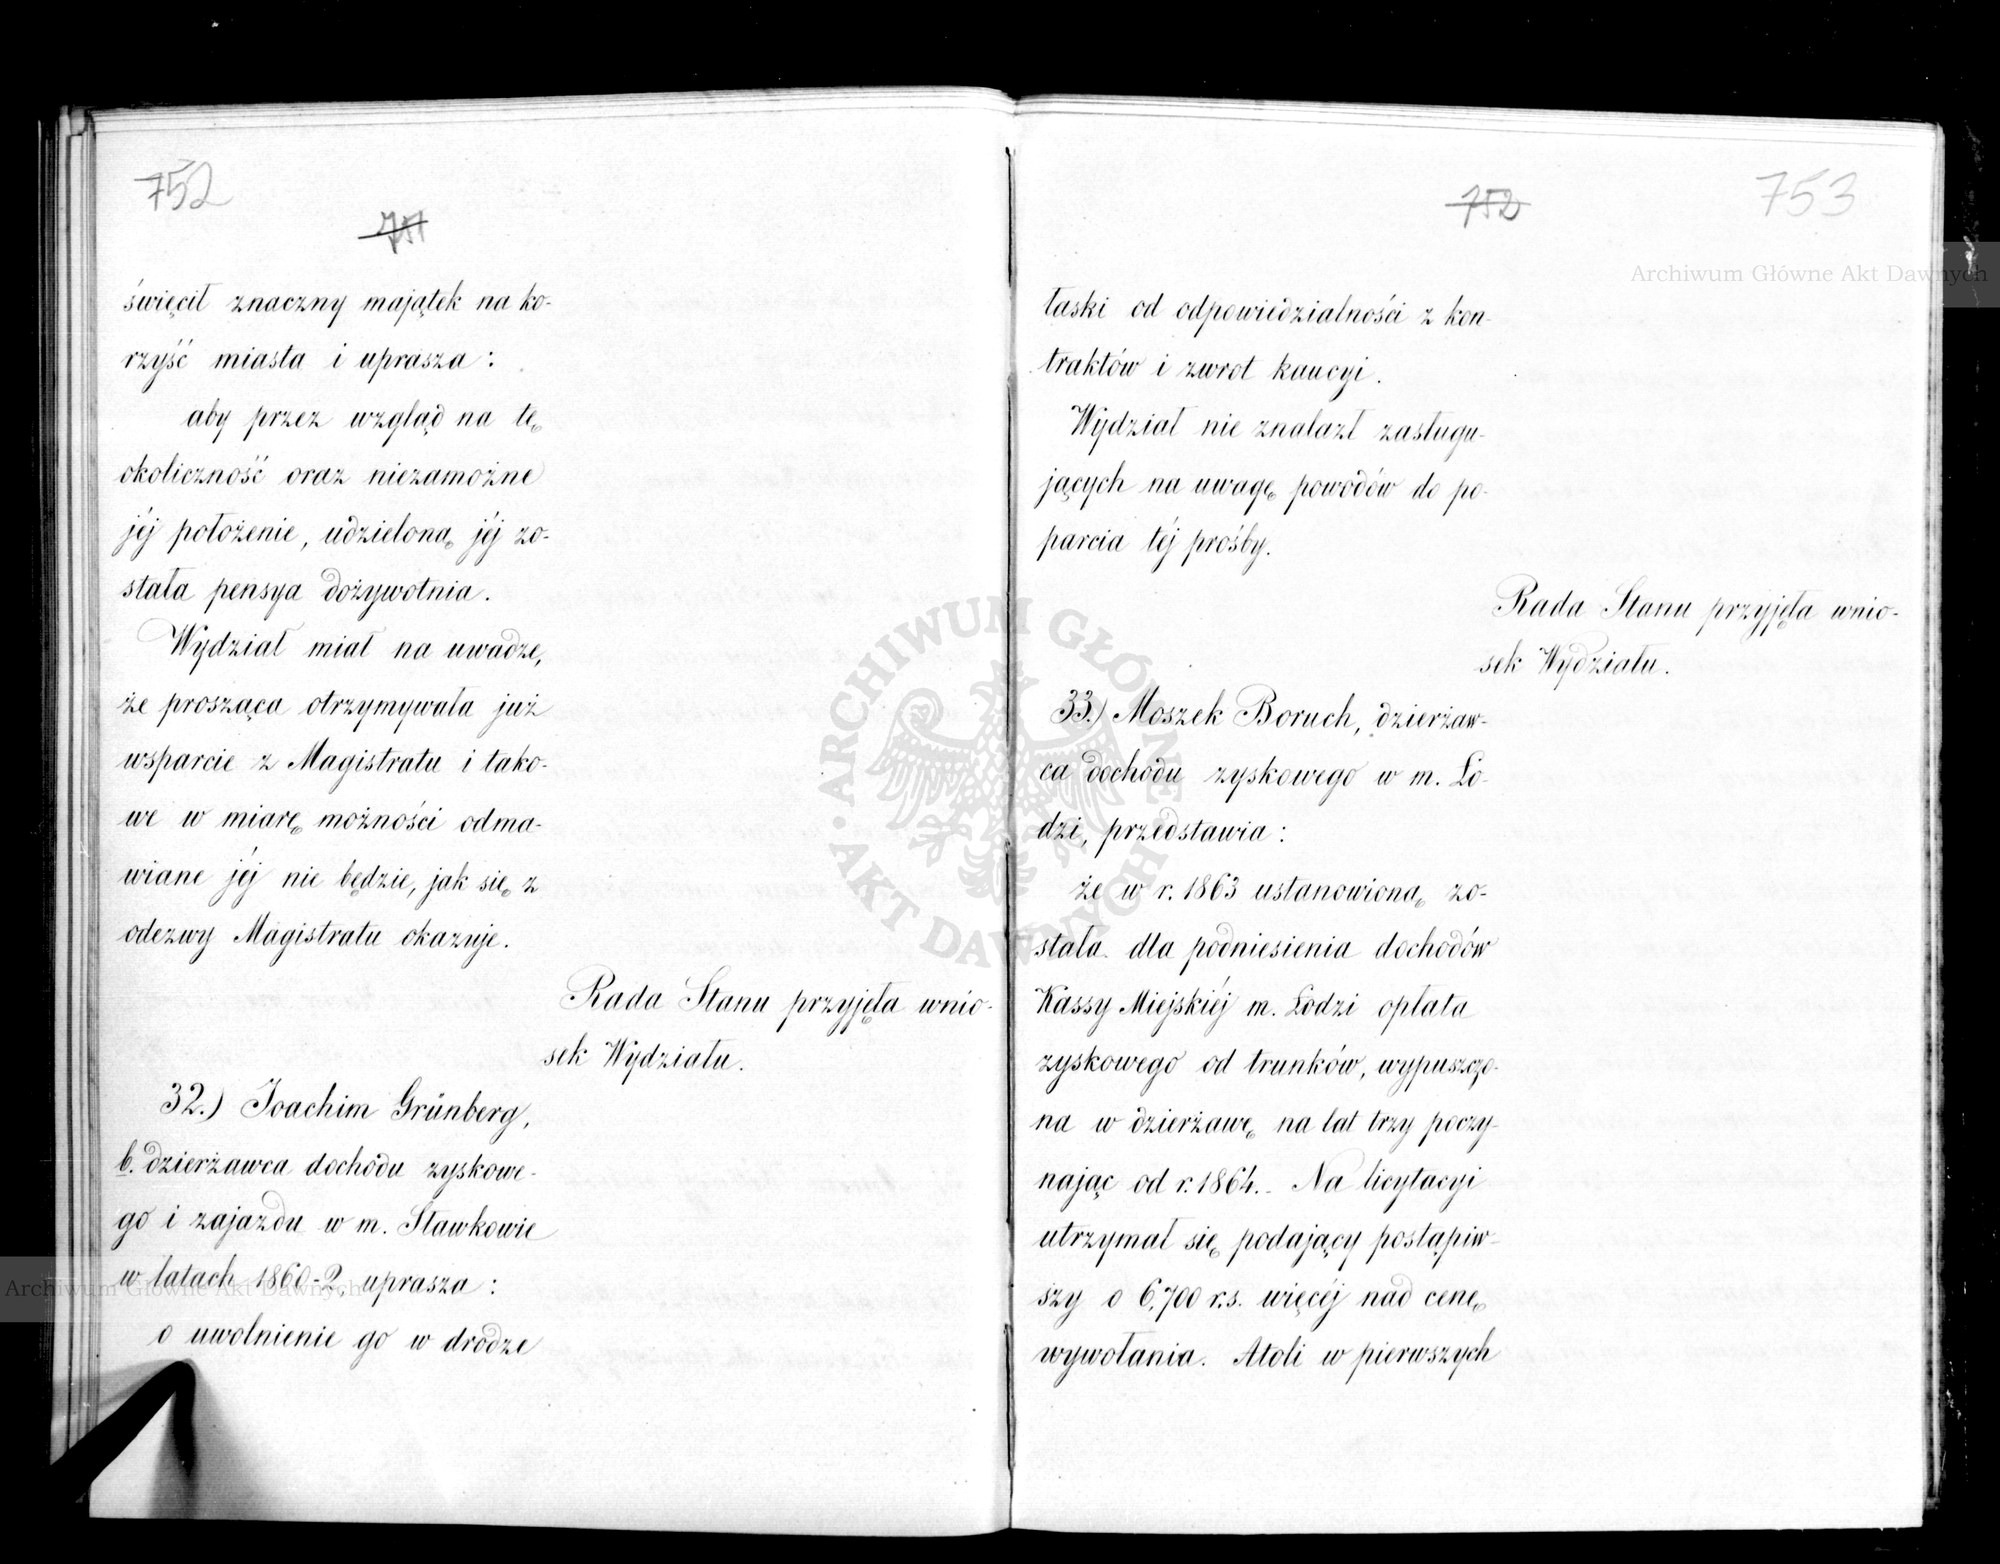 752
751
święcił znaczny majątek na ko-
rzyść miasta i uprasza:
aby przez wzgląd na tę
okoliczność oraz niezamożne
jéj położenie, udzieloną jéj zo-
stała pensya dożywotnia.
Wydział miał na uwadze,
że prosząca otrzymywała już
wsparcie z Magistratu i tako-
we w miarę możności odma-
wiane jéj nie będzie, jak się z
odezwy Magistratu okazuje.
Rada Stanu przyjęła wnio-
sek Wydziału.
32.) Joachim Grünberg,
b. dzierżawca dochodu zyskowe-
go i zajazdu w m. Sławkowie
w latach 1860-2, uprasza:
o uwolnienie go w drodze
752
753
łaski od odpowiedzialności z kon-
traktów i zwrot kaucyi.
Wydział nie znalazł zasługu-
jących na uwagę powodów do po-
parcia téj prośby.
Rada Stanu przyjęła wnio-
sek Wydziału.
33.) Moszek Boruch, dzierżaw-
ca dochodu zyskowego w m. Ło-
dzi, przedstawia:
że w r. 1863 ustanowioną zo-
stała dla podniesienia dochodów
Kassy Miejskiéj m. Łodzi opłata
zyskowego od trunków, wypuszczo-
na w dzierżawę na lat trzy poczy-
nając od r. 1864. Na licytacyi
utrzymał się podający postąpiw-
szy o 6,700 r.s. więcéj nad cenę
wywołania. Atoli w pierwszych
Archiwum Główne Akt Dawnych
Archiwum Główne Akt Dawnych
ARCHIWUM GŁÓWNE AKT DAWNYCH